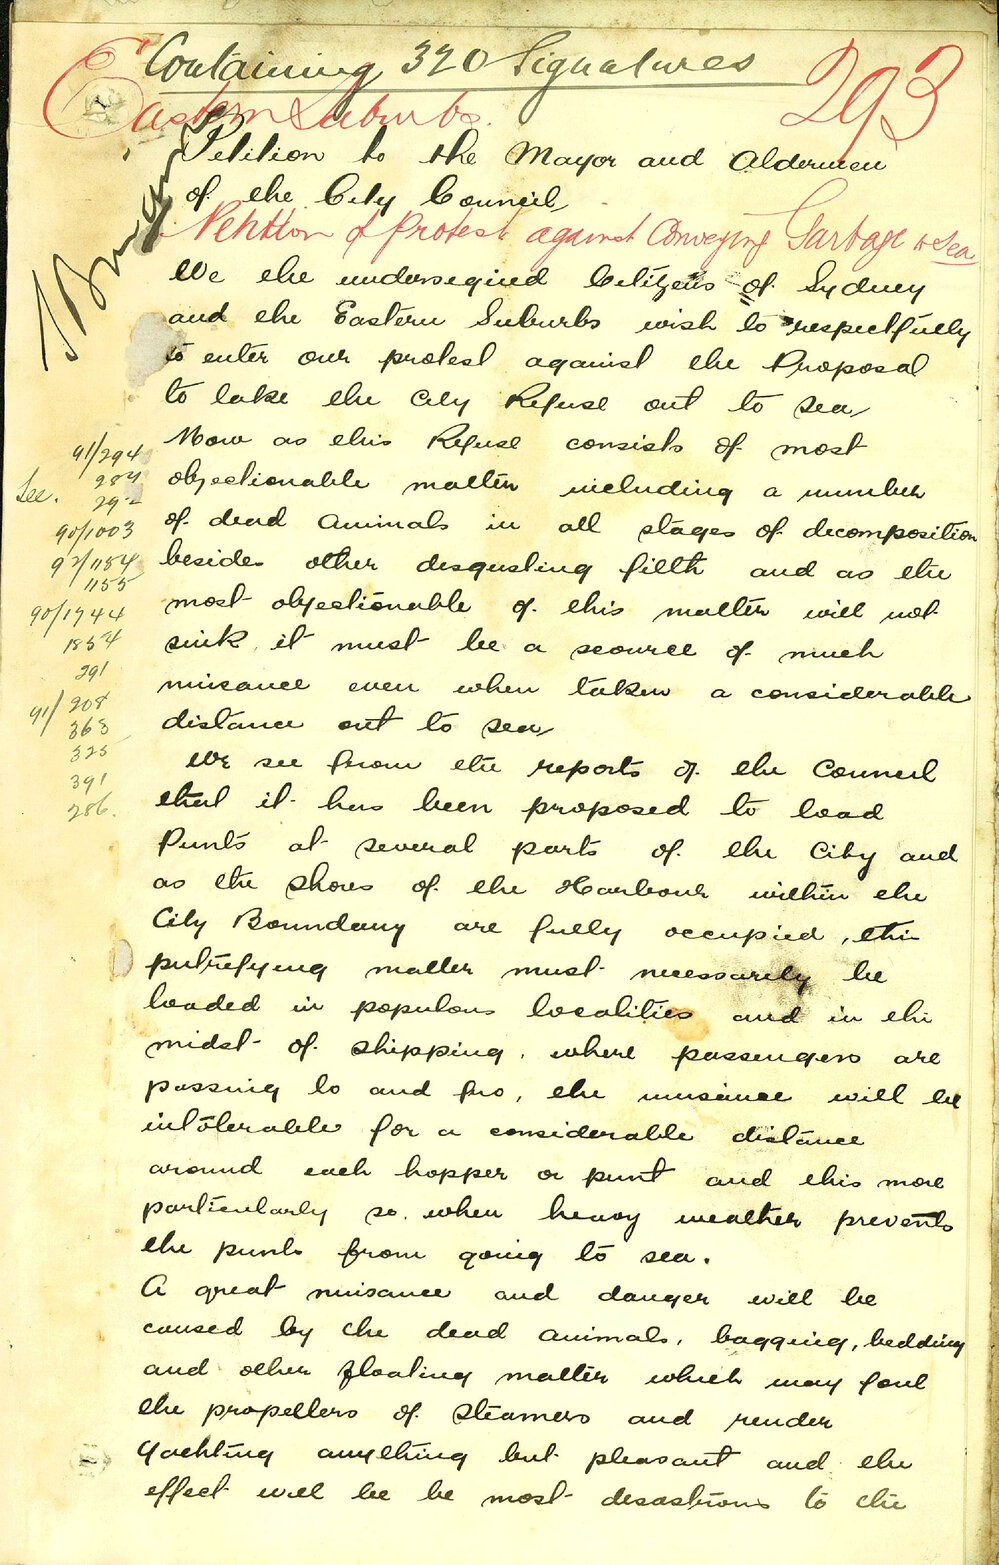 Containing 320 Signatures
293
Eastern Suburbs.
Petition to the Mayor and Aldermen
of the City Council
Petition & Protest against Conveying Garbage to Sea
We the undersegined Citizens of Sydney
and the Eastern Suburbs wish to respectfully
to enter our protest against the Proposal
to take the City Refuse out to sea
Now as this Refuse consists of most
objectionable matter including a number
of dead animals in all stages of decomposition
besides other disgusting filth and as the
most objectionable of this matter will not
sink it must be a scource of much
nuisance even when taken a considerable
distance out to sea
We see from the reports of the Council
that it has been proposed to load
Punts at several parts of the City and
as the shores of the Harbour within the
City Boundary are fully occupied, this
putrefying matter must necessarily be
loaded in populous localities and in the
midst of shipping, where passengers are
passing to and fro, the nuisance will be
intolerable for a considerable distance
around each hopper or punt and this more
particularly so when heavy weather prevents
the punts from going to sea.
A great nuisance and danger will be
caused by the dead animals, bagging, bedding
and other floating matter which may foul
the propellers of steamers and render
yachting anything but pleasant and the
effect will be be most desastrous to the
See.
91/294
284
292
90/1003
92/1184
1155
90/1744
1854
291
91/208
363
325
391
286.